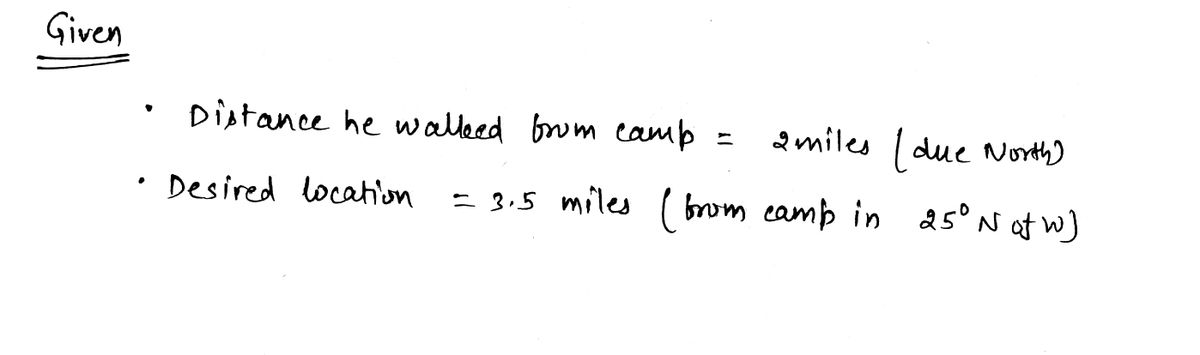 Given
• Distance he walked from camp = 2 miles (due North)
• Desired location = 3.5 miles (from camp in 25° N of W)